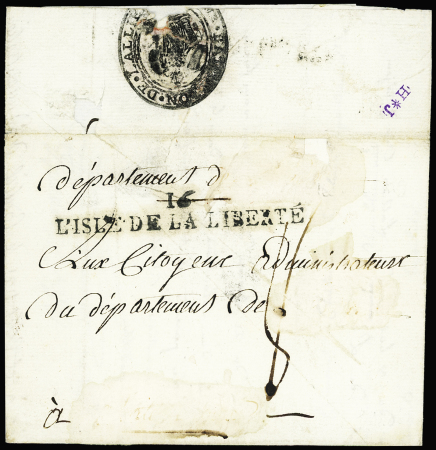 T*H
département d
16
L'ISLE DE LA LIBERTÉ
Aux Citoyens Administrateurs
du département de
à